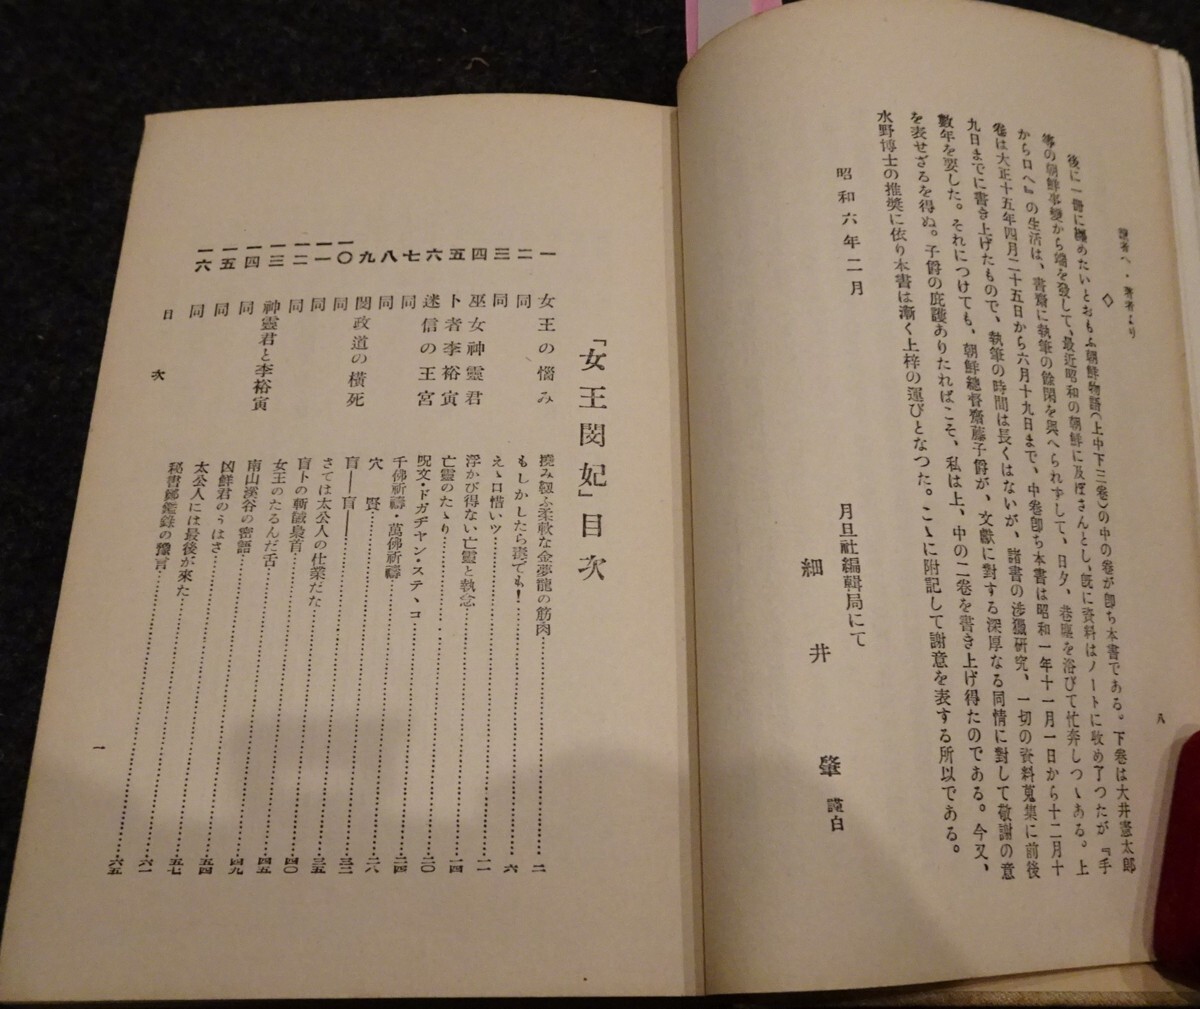 讀者へ・著者より
八
◇
後に一冊に纏めたいとおもふ朝鮮物語(上中下三卷)の中の卷が卽ち本書である。下卷は大井憲太郎
等の朝鮮事變から端を發して、最近昭和の朝鮮に及ぼさんとし、旣に資料はノートに收め了つたが『手
から口へ』の生活は、書齋に執筆の餘閑を與へられずして、日夕、巷塵を浴びて忙奔しつゝある。上
卷は大正十五年四月二十五日から六月十九日まで、中卷卽ち本書は昭和一年十一月一日から十二月十
九日までに書き上げたもので、執筆の時間は長くはないが、諸書の涉獵硏究、一切の資料蒐集に前後
數年を要した。それにつけても、朝鮮總督齋藤子爵が、文獻に對する深厚なる同情に對して敬謝の意
を表せざるを得ぬ。子爵の庇護ありたればこそ、私は上、中の二卷を書き上げ得たのである。今又、
水野博士の推奬に依り本書は漸く上梓の運びとなつた。こゝに附記して謝意を表する所以である。
昭和六年二月
月旦社編輯局にて
細井肇 謹白
「女王閔妃」目次
一 女王の惱み 撓み靱ふ柔軟な金夢龍の筋肉……二
二 同 もしかしたら毒でも!……六
三 同 えゝ口惜いツ……一一
四 巫女神靈君 浮かび得ない亡靈と執念……一四
五 卜者李裕寅 亡靈のたゝり……二〇
六 迷信の王宮 呪文・ドガチヤン・ステヽコ……二四
七 同 千佛祈禱・萬佛祈禱……二八
八 同 穴 賢……三二
九 閔政道の橫死 盲――盲――……三五
一〇 同 さては太公人の仕業だな……四〇
一一 同 盲卜の斬馘梟首……四五
一二 同 女王のたるんだ舌……四九
一三 神靈君と李裕寅 南山溪谷の密語……五四
一四 同 凶鮮君のうはさ……五七
一五 同 太公人には最後が來た……六一
一六 同 秘書鄭鑑錄の豫言……六五
目次
一